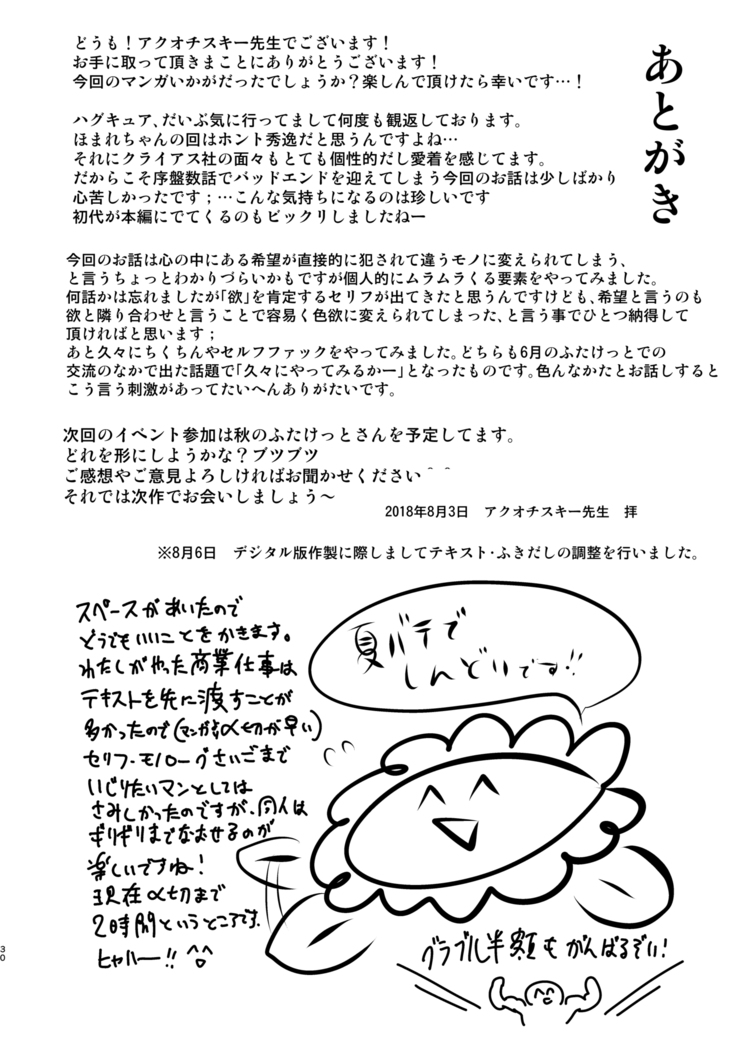 あとがき
どうも！アクオチスキー先生でございます！
お手に取って頂きまことにありがとうございます！
今回のマンガいかがだったでしょうか？楽しんで頂けたら幸いです…！
ハグキュア、だいぶ気に行ってまして何度も観返しております。
ほまれちゃんの回はホント秀逸だと思うんですよね…
それにクライアス社の面々もとても個性的だし愛着を感じてます。
だからこそ序盤数話でバッドエンドを迎えてしまう今回のお話は少しばかり
心苦しかったです；…こんな気持ちになるのは珍しいです
初代が本編にでてくるのもビックリしましたねー
今回のお話は心の中にある希望が直接的に犯されて違うモノに変えられてしまう、
と言うちょっとわかりづらいかもですが個人的にムラムラくる要素をやってみました。
何話かは忘れましたが「欲」を肯定するセリフが出てきたと思うんですけども、希望と言うのも
欲と隣り合わせと言うことで容易く色欲に変えられてしまった、と言う事でひとつ納得して
頂ければと思います；
あと久々にちくちんやセルフファックをやってみました。どちらも6月のふたけっとでの
交流のなかで出た話題で「久々にやってみるかー」となったものです。色んなかたとお話しすると
こう言う刺激があってたいへんありがたいです。
次回のイベント参加は秋のふたけっとさんを予定してます。
どれを形にしようかな？ブツブツ
ご感想やご意見よろしければお聞かせください＾＾
それでは次作でお会いしましょう～
2018年8月3日　アクオチスキー先生　拝
※8月6日　デジタル版作製に際しましてテキスト・ふきだしの調整を行いました。
スペースがあいたので
どうでもいいことをかきます。
わたしがやった商業仕事は
テキストを先に渡すことが
多かったので(マンガより〆切が早い)
セリフ・モノローグさいごまで
いじりたいマンとしては
さみしかったのですが、同人は
ギリギリまでなおせるのが
楽しいですね！
現在〆切まで
2時間というところです。
ヒャハー!! ^^
夏バテで
しんどいです!!
グラブル半額もがんばるぞい！
30